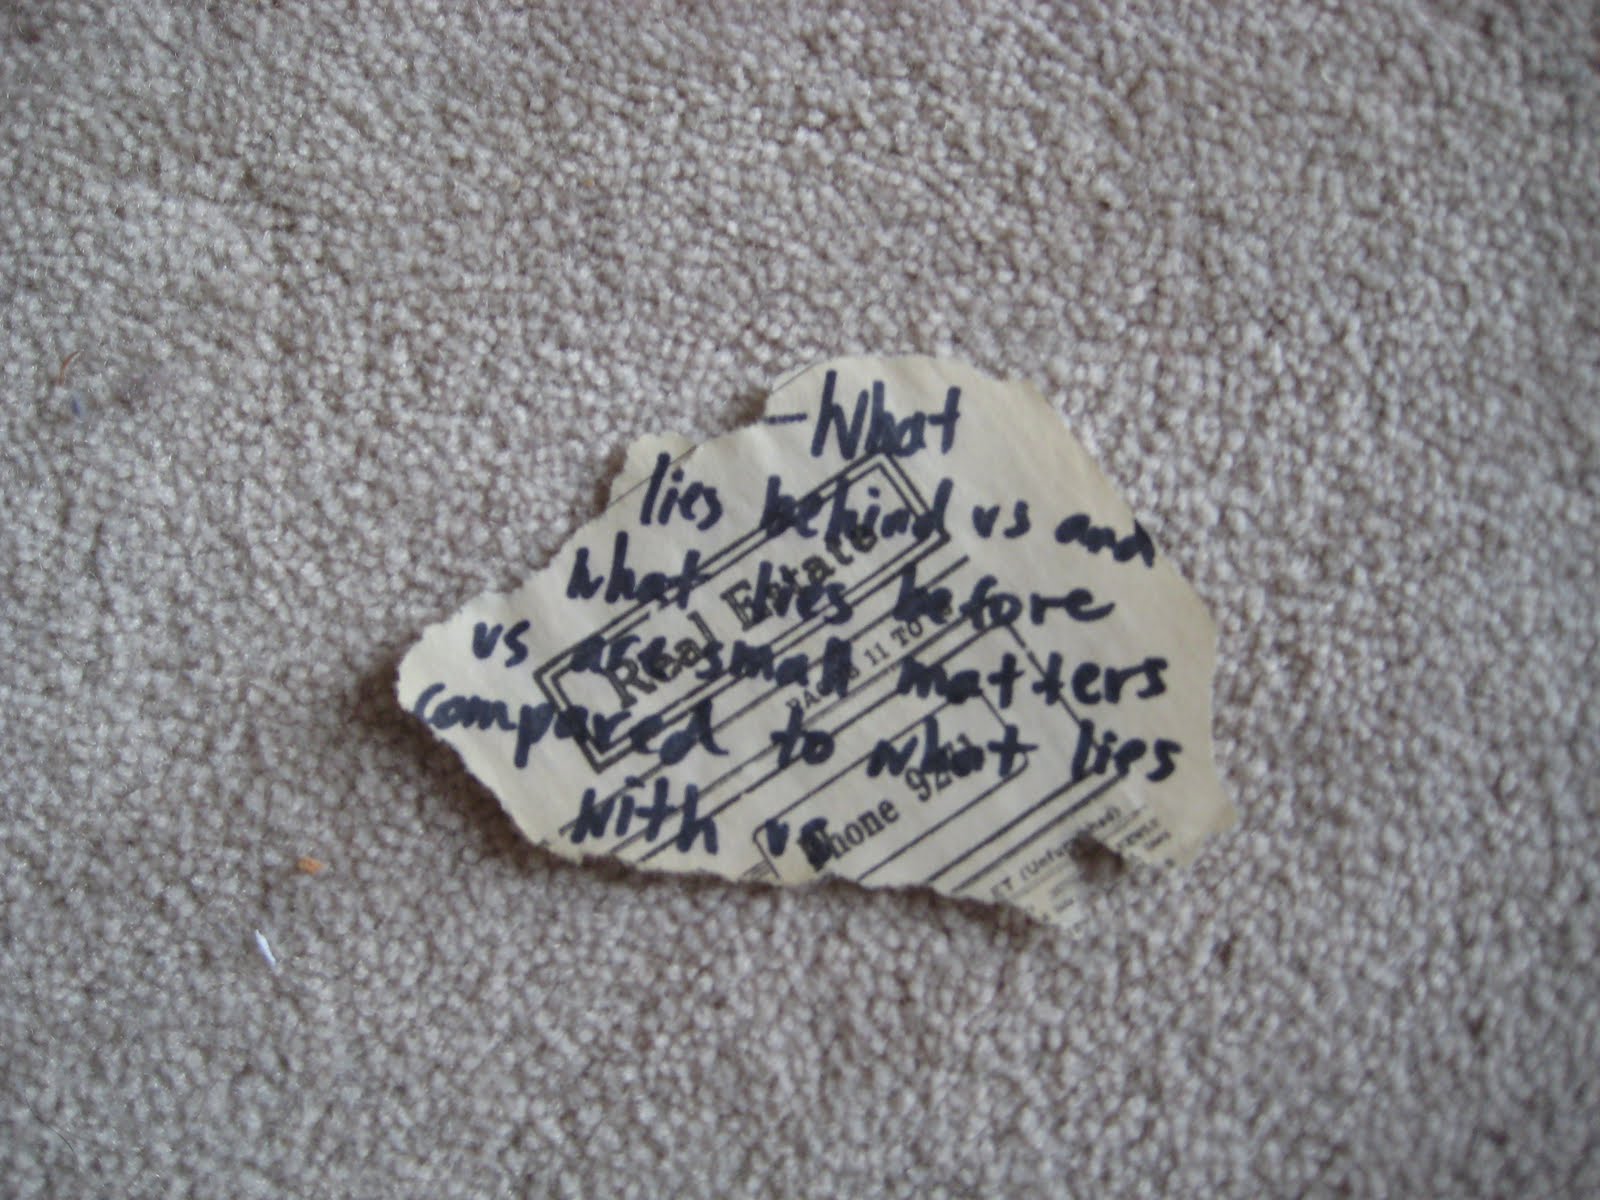 -What
lies behind us and
what lies before
us are small matters
compared to what lies
with us
Real Estate
11 TO
Phone 92